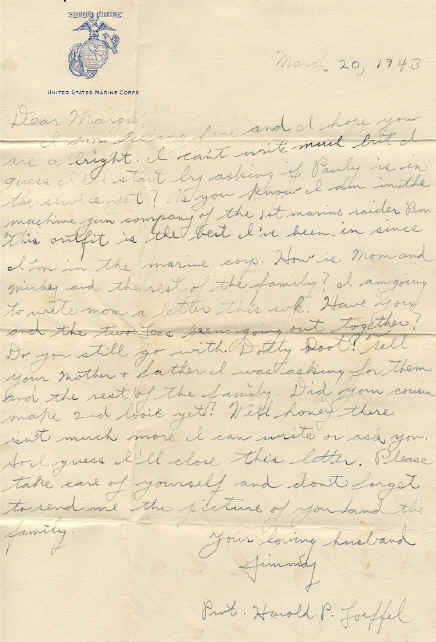 UNITED STATES MARINE CORPS
March 20, 1943
Dear Marge
I am feeling fine and I hope you
are alright. I can't write much but I
guess I'll start by asking if Pauly is in
the service yet? As you know I am in the
machine gun company of the 1st marine raider Bn
this outfit is the best I've been in since
I'm in the marine corp. How is Mom and
and the rest of the family? I am going
to write mom a letter this wk. Have you
and the two been going out together?
Do you still go with Dotty Doot? Tell
your Mother & father I was asking for them
and the rest of the family. Did your cousin
make 2nd looie yet? Well honey there
isn't much more I can write or ask you.
So I guess I'll close this letter. Please
take care of yourself and don't forget
to send me the picture of you and the
family.
Your loving husband
Jimmy
Pvt. Harold P. Loeffel